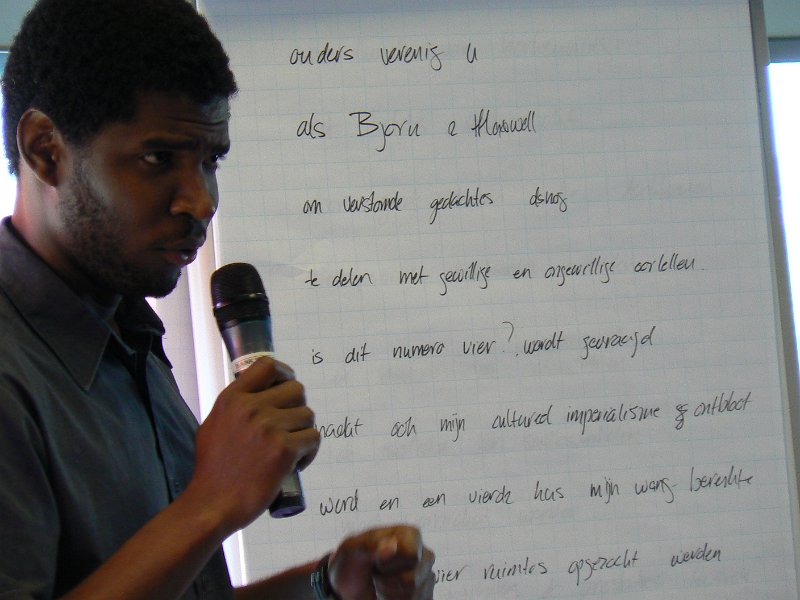 ouders verenig u
als Bjorn e
om verstomde gedachtes
te delen met gewillige en ongewillige oorlellen.
is dit numero vier?, wordt gevraagd
nadat ook mijn cultureel imperialisme ontbloot
werd en een vierde kus mijn wang bereikte
vier ruimtes opgezocht werden